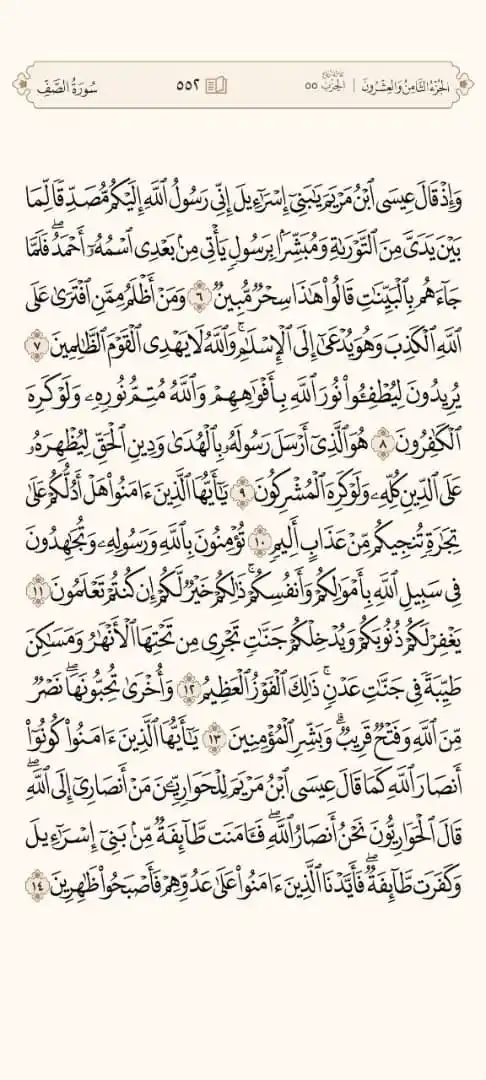 الجزء الثامن والعشرون | الحزب ٥٥ ٥٥٢ سورة الصف
وَإِذْ قَالَ عِيسَى ٱبْنُ مَرْيَمَ يَٰبَنِىٓ إِسْرَٰٓءِيلَ إِنِّى رَسُولُ ٱللَّهِ إِلَيْكُم مُّصَدِّقًا لِّمَا
بَيْنَ يَدَىَّ مِنَ ٱلتَّوْرَىٰةِ وَمُبَشِّرًۢا بِرَسُولٍ يَأْتِى مِنۢ بَعْدِى ٱسْمُهُۥٓ أَحْمَدُ ۖ فَلَمَّا
جَآءَهُم بِٱلْبَيِّنَٰتِ قَالُوا۟ هَٰذَا سِحْرٌ مُّبِينٌ ٦ وَمَنْ أَظْلَمُ مِمَّنِ ٱفْتَرَىٰ عَلَى
ٱللَّهِ ٱلْكَذِبَ وَهُوَ يُدْعَىٰٓ إِلَى ٱلْإِسْلَٰمِ ۚ وَٱللَّهُ لَا يَهْدِى ٱلْقَوْمَ ٱلظَّٰلِمِينَ ٧
يُرِيدُونَ لِيُطْفِـُٔوا۟ نُورَ ٱللَّهِ بِأَفْوَٰهِهِمْ وَٱللَّهُ مُتِمُّ نُورِهِۦ وَلَوْ كَرِهَ
ٱلْكَٰفِرُونَ ٨ هُوَ ٱلَّذِىٓ أَرْسَلَ رَسُولَهُۥ بِٱلْهُدَىٰ وَدِينِ ٱلْحَقِّ لِيُظْهِرَهُۥ
عَلَى ٱلدِّينِ كُلِّهِۦ وَلَوْ كَرِهَ ٱلْمُشْرِكُونَ ٩ يَٰٓأَيُّهَا ٱلَّذِينَ ءَامَنُوا۟ هَلْ أَدُلُّكُمْ عَلَىٰ
تِجَٰرَةٍ تُنجِيكُم مِّنْ عَذَابٍ أَلِيمٍ ١٠ تُؤْمِنُونَ بِٱللَّهِ وَرَسُولِهِۦ وَتُجَٰهِدُونَ
فِى سَبِيلِ ٱللَّهِ بِأَمْوَٰلِكُمْ وَأَنفُسِكُمْ ۚ ذَٰلِكُمْ خَيْرٌ لَّكُمْ إِن كُنتُمْ تَعْلَمُونَ ١١
يَغْفِرْ لَكُمْ ذُنُوبَكُمْ وَيُدْخِلْكُمْ جَنَّٰتٍ تَجْرِى مِن تَحْتِهَا ٱلْأَنْهَٰرُ وَمَسَٰكِنَ
طَيِّبَةً فِى جَنَّٰتِ عَدْنٍ ۚ ذَٰلِكَ ٱلْفَوْزُ ٱلْعَظِيمُ ١٢ وَأُخْرَىٰ تُحِبُّونَهَا ۖ نَصْرٌ
مِّنَ ٱللَّهِ وَفَتْحٌ قَرِيبٌ ۗ وَبَشِّرِ ٱلْمُؤْمِنِينَ ١٣ يَٰٓأَيُّهَا ٱلَّذِينَ ءَامَنُوا۟ كُونُوٓا۟
أَنصَارَ ٱللَّهِ كَمَا قَالَ عِيسَى ٱبْنُ مَرْيَمَ لِلْحَوَارِيِّـۧنَ مَنْ أَنصَارِىٓ إِلَى ٱللَّهِ ۖ
قَالَ ٱلْحَوَارِيُّونَ نَحْنُ أَنصَارُ ٱللَّهِ ۖ فَـَٔامَنَت طَّآئِفَةٌ مِّنۢ بَنِىٓ إِسْرَٰٓءِيلَ
وَكَفَرَت طَّآئِفَةٌ ۖ فَأَيَّدْنَا ٱلَّذِينَ ءَامَنُوا۟ عَلَىٰ عَدُوِّهِمْ فَأَصْبَحُوا۟ ظَٰهِرِينَ ١٤